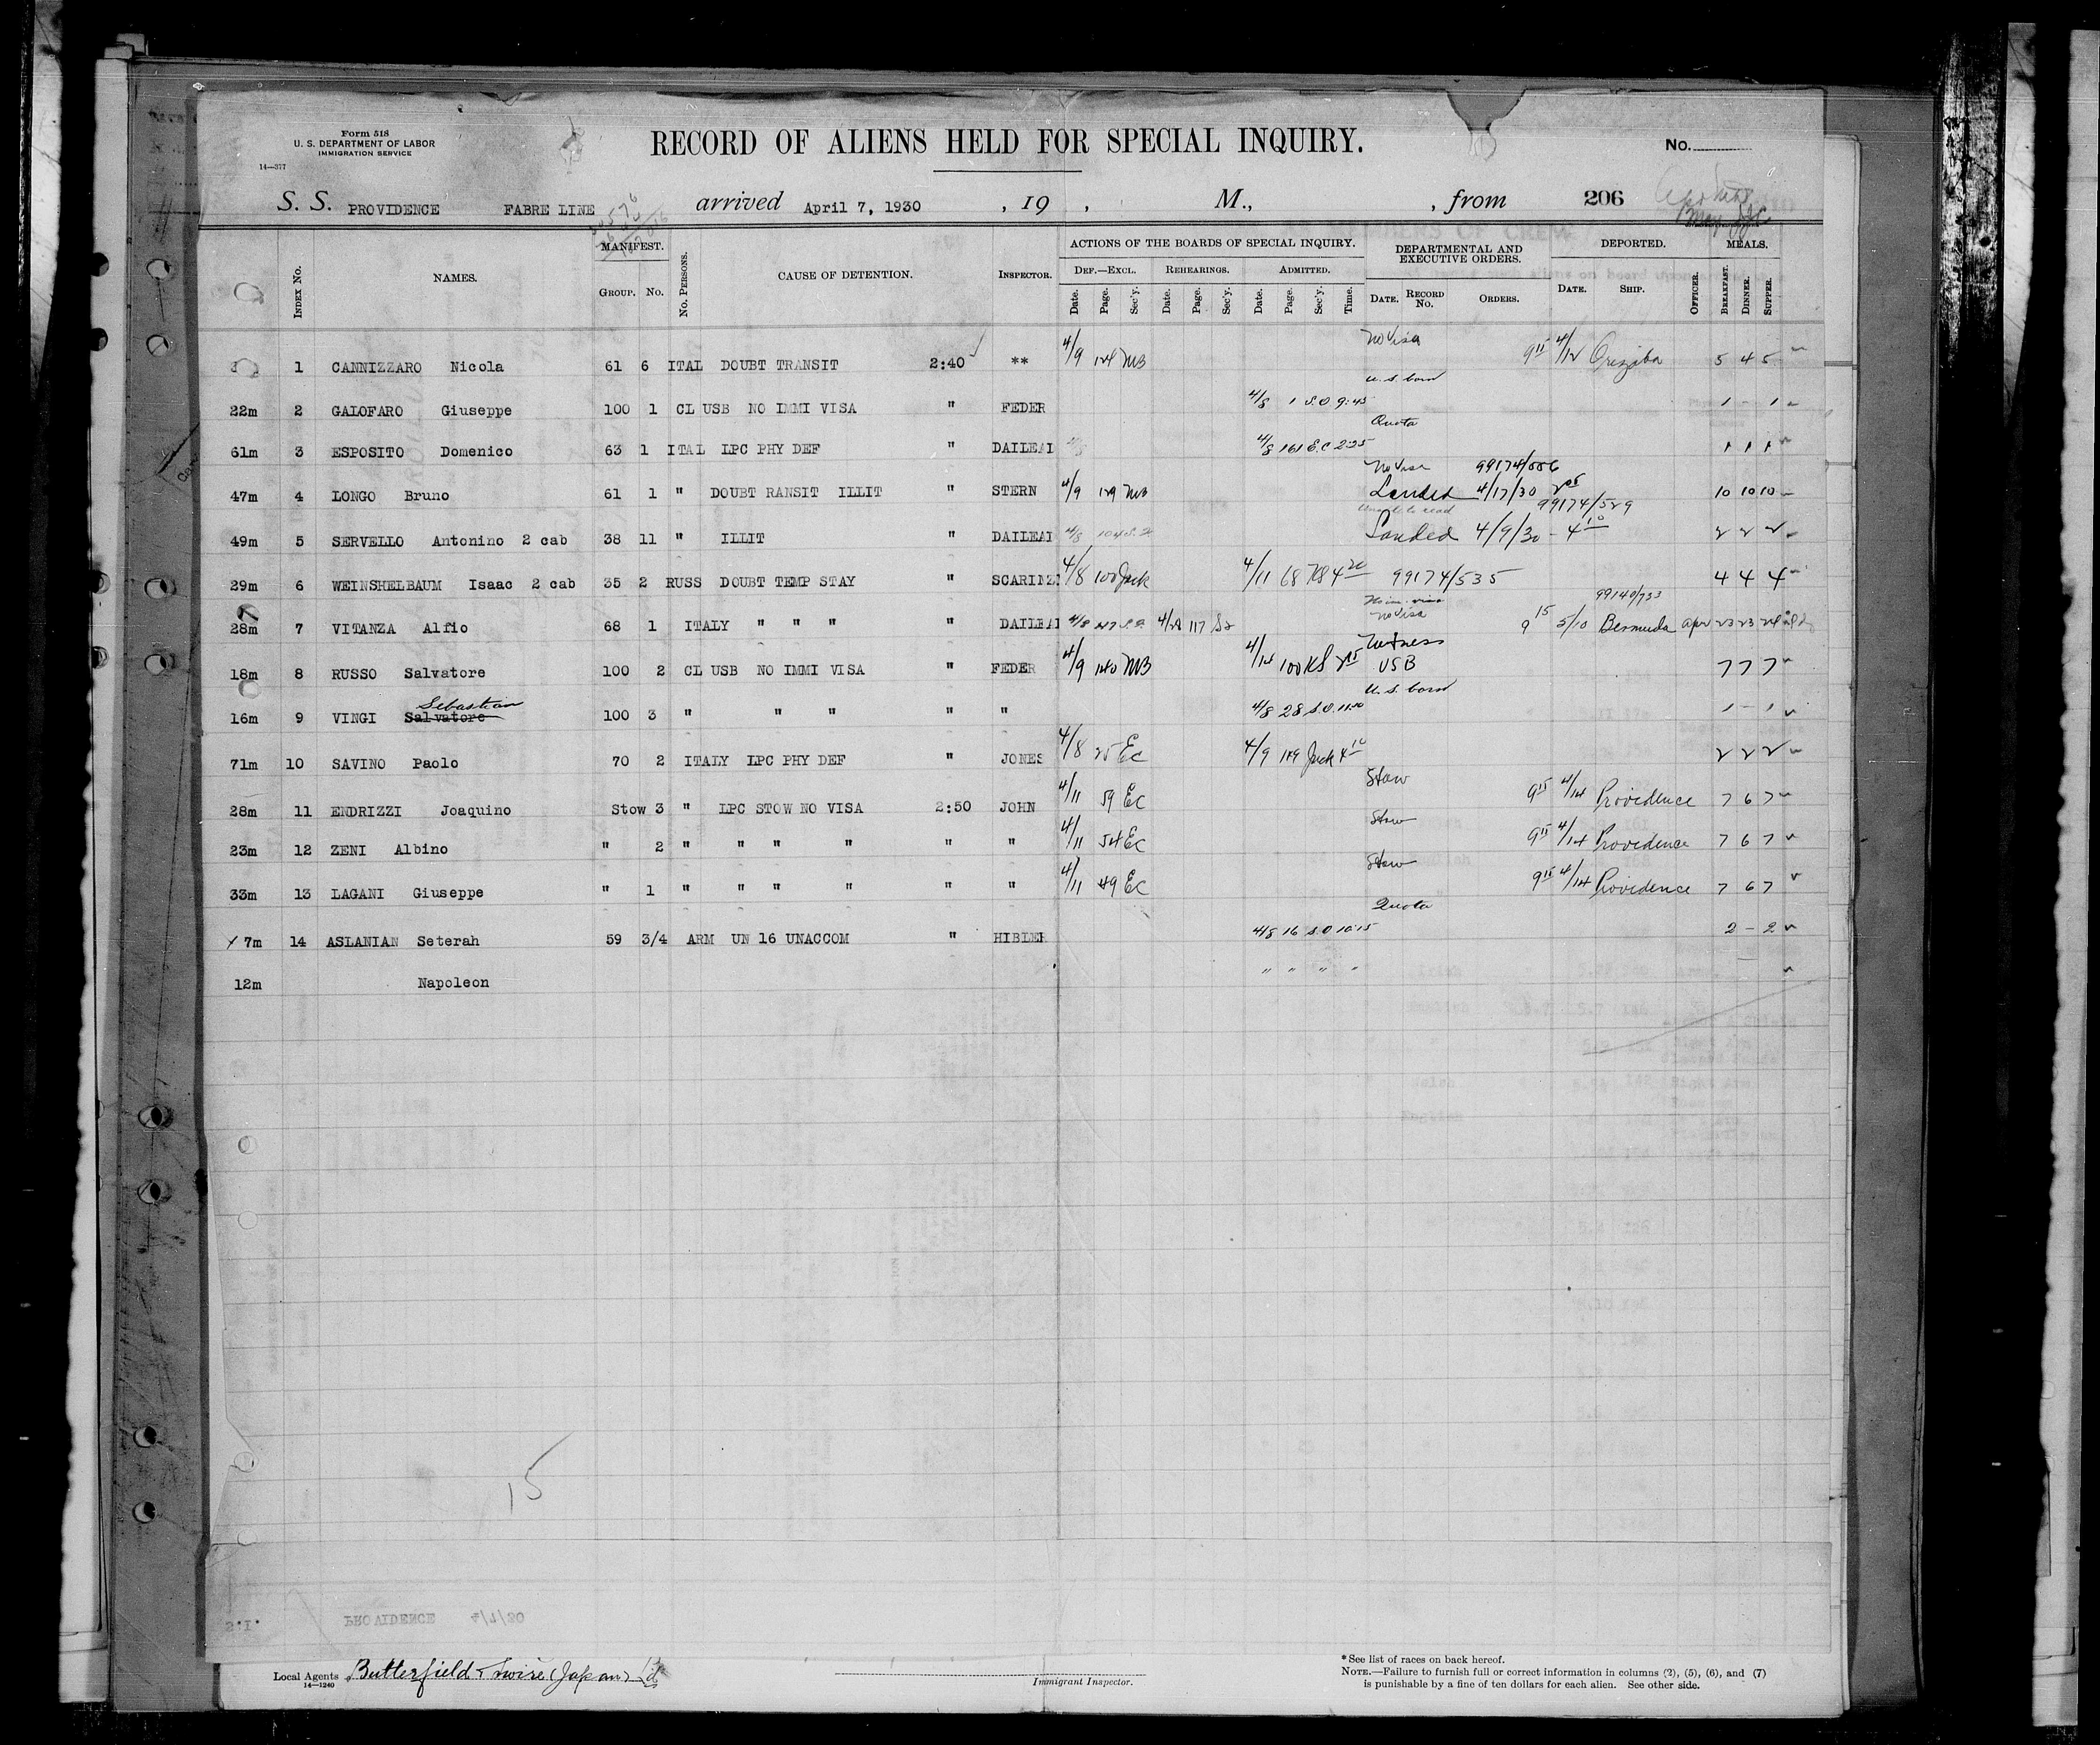 Form 518
U. S. DEPARTMENT OF LABOR
IMMIGRATION SERVICE
14—377
RECORD OF ALIENS HELD FOR SPECIAL INQUIRY.
No.
S. S. PROVIDENCE FABRE LINE arrived April 7, 1930 , 19 , M., , from 206
INDEX NO. NAMES. MANIFEST. GROUP. NO. NO. PERSONS. CAUSE OF DETENTION. INSPECTOR. ACTIONS OF THE BOARDS OF SPECIAL INQUIRY. DEF.—EXCL. Date. Page. Sec'y. REHEARINGS. Date. Page. Sec'y. ADMITTED. Date. Page. Sec'y. Time. DEPARTMENTAL AND EXECUTIVE ORDERS. DATE. RECORD NO. ORDERS. DEPORTED. DATE. SHIP. OFFICER. MEALS. BREAKFAST. DINNER. SUPPER.
No Visa
1 CANNIZZARO Nicola 61 6 ITAL DOUBT TRANSIT 2:40 ** 4/9 124 MB 9 15 4/12 Orizaba 5 4 5
U. S. born
22m 2 GALOFARO Giuseppe 100 1 CL USB NO IMMI VISA " FEDER 4/8 1 S.O 9:45 1 - 1
Quota
61m 3 ESPOSITO Domenico 63 1 ITAL LPC PHY DEF " DAILEAI 4/8 161 E.C 2:25 1 1 1
No Visa 99174/
47m 4 LONGO Bruno 61 1 " DOUBT RANSIT ILLIT " STERN 4/9 129 MB Landed 4/17/30 10 10 10
Unable to read 99174/529
49m 5 SERVELLO Antonino 2 cab 38 11 " ILLIT " DAILEAI 4/8 104 Landed 4/9/30 - 4 10 2 2 2
29m 6 WEINSHELBAUM Isaac 2 cab 35 2 RUSS DOUBT TEMP STAY " SCARINZI 4/8 100 Jack 4/11 68 KS 4 20 99174/535 4 4 4
99140/733
No Visa
28m 7 VITANZA Alfio 68 1 ITALY " " " " DAILEAI 4/8 4/29 117 9 15 5/10 Bermuda 23 23 24
Witness
18m 8 RUSSO Salvatore 100 2 CL USB NO IMMI VISA " FEDER 4/9 140 MB 4/14 100 KS USB 7 7 7
Sebastian U. S. born
16m 9 VINGI Salvatore 100 3 " " " " " 4/8 28 S.O. 11:50 1 - 1
71m 10 SAVINO Paolo 70 2 ITALY LPC PHY DEF " JONES 4/8 25 EC 4/9 149 Jack 4 10 2 2 2
Stow
28m 11 ENDRIZZI Joaquino Stow 3 " LPC STOW NO VISA 2:50 JOHN 4/11 59 EC 9 15 4/14 Providence 7 6 7
Stow
23m 12 ZENI Albino " 2 " " " " " " 4/11 54 EC 9 15 4/14 Providence 7 6 7
Stow
33m 13 LAGANI Giuseppe " 1 " " " " " " 4/11 49 EC 9 15 4/14 Providence 7 6 7
Quota
7m 14 ASLANIAN Seterah 59 3/4 ARM UN 16 UNACCOM " HIBLER 4/8 16 S.O 10:15 2 - 2
12m Napoleon " " " "
15
PROVIDENCE 4/7/30
S.I.
Local Agents Butterfield & Swire (Japan) Ld
14—1240
Immigrant Inspector.
* See list of races on back hereof.
NOTE.—Failure to furnish full or correct information in columns (2), (5), (6), and (7)
is punishable by a fine of ten dollars for each alien. See other side.